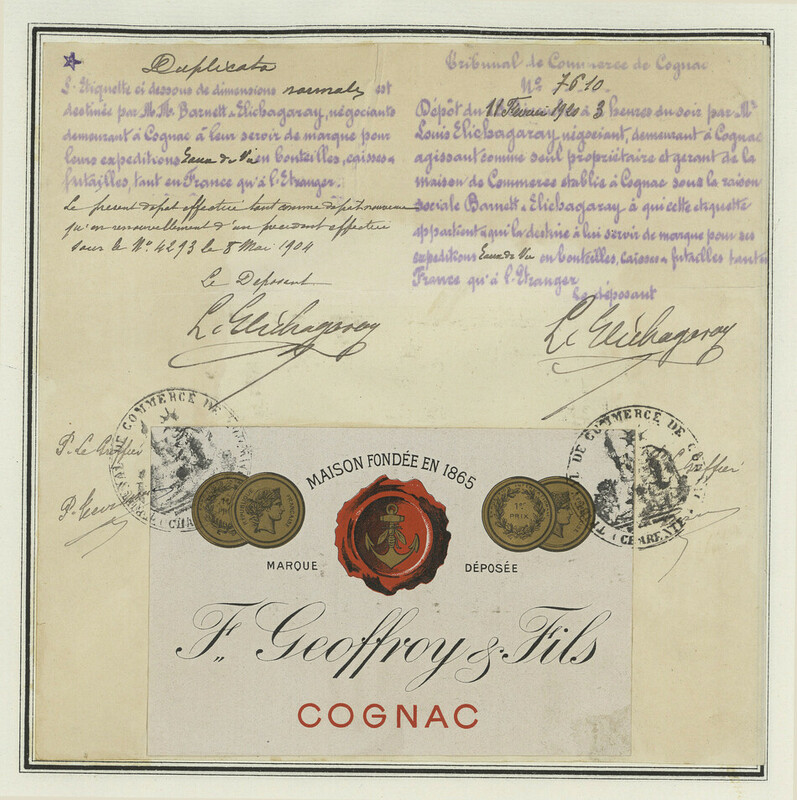 Duplicata
L'Etiquette ci dessous de dimensions normales est
destinée par M.M. Barnett & Elichagaray, négociants
demeurant à Cognac à leur servir de marque pour
leurs expeditions Eaux de Vie en bouteilles, caisses &
futailles, tant en France qu'à l'Etranger.
Le present dépôt effectué tant comme dépôt nouveau
qu'en renouvellement d'un precedent effectué
sous le No. 4293 le 8 Mai 1904
Le Déposant
L. Elichagaray
Tribunal de Commerce de Cognac
No. 7610.
Dépôt du 11 Février 1920 à 3 heures du soir par Mr.
Louis Elichagaray, négociant, demeurant à Cognac
agissant comme seul propriétaire et gerant de la
maison de Commerce établie à Cognac sous la raison
sociale Barnett & Elichagaray à qui cette etiquette
appartient & qui la destine à lui servir de marque pour ses
expeditions Eaux de Vie en bouteilles, caisses & futailles tant en
France qu'à l'Etranger
Le déposant
L. Elichagaray
P. Le Greffier
TRIBUNAL DE COMMERCE DE
CHARENTE
Greffier
MAISON FONDÉE EN 1865
1er PRIX
MARQUE DÉPOSÉE
F. Geoffroy & Fils
COGNAC